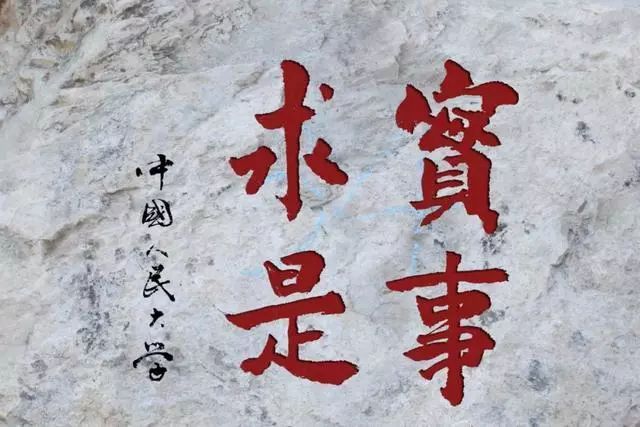 實事
求是
中國人民大学